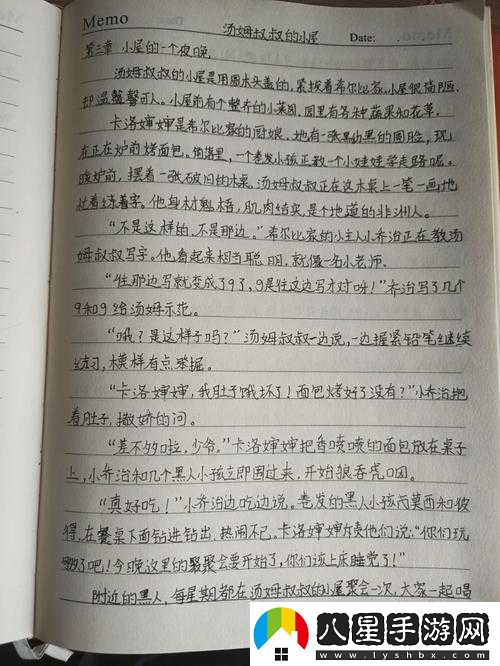 Memo
汤姆叔叔的小屋
Date:
第三章 小屋的一个夜晚.
汤姆叔叔的小屋是用圆木头盖的，紧挨着希尔比家。小屋很简陋，
却温馨可人。小屋前有个整齐的小菜园，园里有各种蔬果和花草。
卡洛婶婶是希尔比家的厨娘，她有一张黝黑的圆脸，现
在正在炉前烤面包。角落里，一个卷发小孩正教一个小娃娃学走路呢。
暖炉前，摆着一张破旧的木桌，汤姆叔叔正在这木桌上一笔一画地
忙着练着字。他身材魁梧，肌肉结实，是个地道的非洲人。
“不是这样的，不是那边。”希尔比家的小主人小乔治正在教汤
姆叔叔写字。他看起来相当聪明，就像一名小老师。
“往那边写就变成了9了，g是往这边写才对呀！”乔治写了几个
9和g给汤姆示范。
“哦？是这样子吗？”汤姆叔叔一边说，一边握紧铅笔继续
练习，模样有点笨拙。
“卡洛婶婶，我肚子饿坏了！面包烤好了没有？”小乔治抱
着肚子，撒娇的问。
“差不多啦，少爷。”卡洛婶婶把香喷喷的面包放在桌子
上，小乔治和几个黑人小孩立即围过来，开始狼吞虎咽。
“真好吃！”小乔治边吃边说。卷发的黑人小孩丙莫西和彼
得，在餐桌下面钻进钻出，热闹不已。卡洛婶婶责他们说：“你们玩
够了吧！今晚这里的聚会要开始了，你们该上床睡觉了！”
附近的黑人，每星期都在汤姆叔叔的小屋聚会一次，大家一起唱
八星手游网
www.lyshbx.com